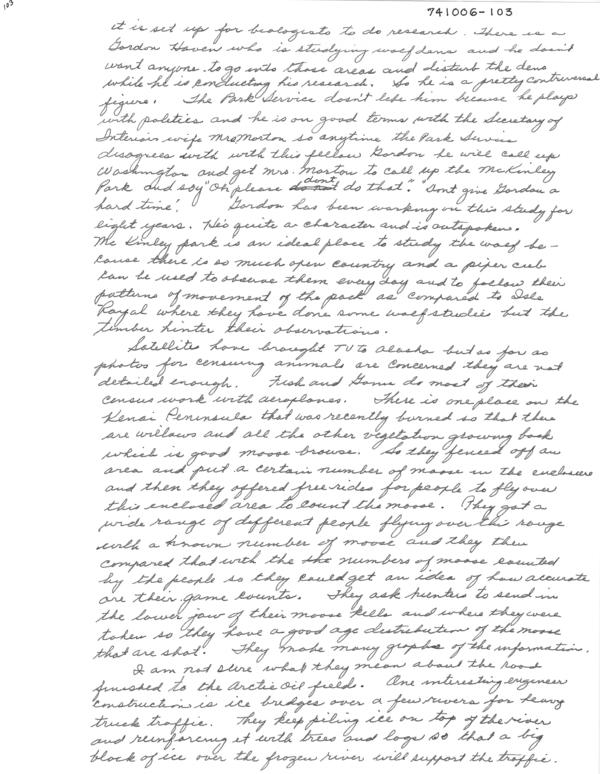 103
741006-103
it is set up for biologists to do research. There is a
Gordon Haven who is studying wolf dens and he doesn't
want anyone to go into those areas and disturb the dens
while he is conducting his research. So he is a pretty controversal
figure. The Park Service dosn't like him because he plays
with politics and he is on good terms with the Secretary of
Interiors wife Mrs Morton so anytime the Park Service
disagrees with with this fellow Gordon he will call up
Washington and get Mrs. Morton to call up the McKinley
Park and say "Oh please dont do that." "Dont give Gordon a
hard time". Gordon has been working on this study for
eight years. He's quite a character and is outspoken.
McKinley park is an ideal place to study the wolf be-
cause there is so much open country and a piper cub
can be used to observe them every day and to follow their
patterns of movement of the pack as compared to Isle
Royal where they have done some wolf studies but the
timber hinter their observations.
Satellites have brought TV to Alaska but as far as
photos for censuing animals are concerned they are not
detailed enough. Fish and Game do most of their
census work with aeroplanes. There is one place on the
Kenai Peninsula that was recently burned so that there
are willows and all the other vegetation growing back
which is good moose browse. So they fenced off an
area and put a certain number of moose in the enclosure
and then they offered free rides for people to fly over
this enclosed area to count the moose. They got a
wide range of different people flying over this range
with a known number of moose and they then
compared that with the the numbers of moose counted
by the people so they could get an idea of how accurate
are their game counts. They ask hunters to send in
the lower jaw of their moose kills and where they were
taken so they have a good age distribution of the moose
that are shot. They make many graphs of the information.
I am not sure what they mean about the road
finished to the Arctic Oil field. One interesting engineer
construction is ice bridges over a few rivers for heavy
truck traffic. They keep piling ice on top of the river
and reinforcing it with trees and logs so that a big
block of ice over the frozen river will support the traffic.